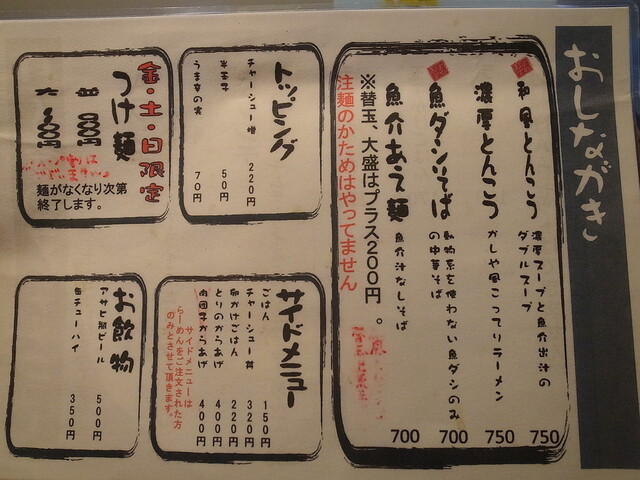 おしながき
和風とんこう
濃厚スープと魚介出汁の
ダブルスープ
750
濃厚とんこう
かしや風こってりラーメン
750
魚ダシそば
動物系を使わない魚ダシのみ
の中華そば
700
魚介あえ麺
魚介汁なしそば
700
※替玉、大盛はプラス200円。
注麺のかためはやってません
トッピング
チャーシュー増 220円
半玉子 50円
うま辛の素 70円
金・土・日限定
つけ麺
麺がなくなり次第
終了します。
サイドメニュー
ごはん 150円
チャーシュー丼 320円
卵かけごはん 220円
とりのからあげ 400円
肉団子からあげ 400円
サイドメニューは
らーめんをご注文された方
のみとさせて頂きます。
お飲物
アサヒ瓶ビール 500円
缶チューハイ 350円